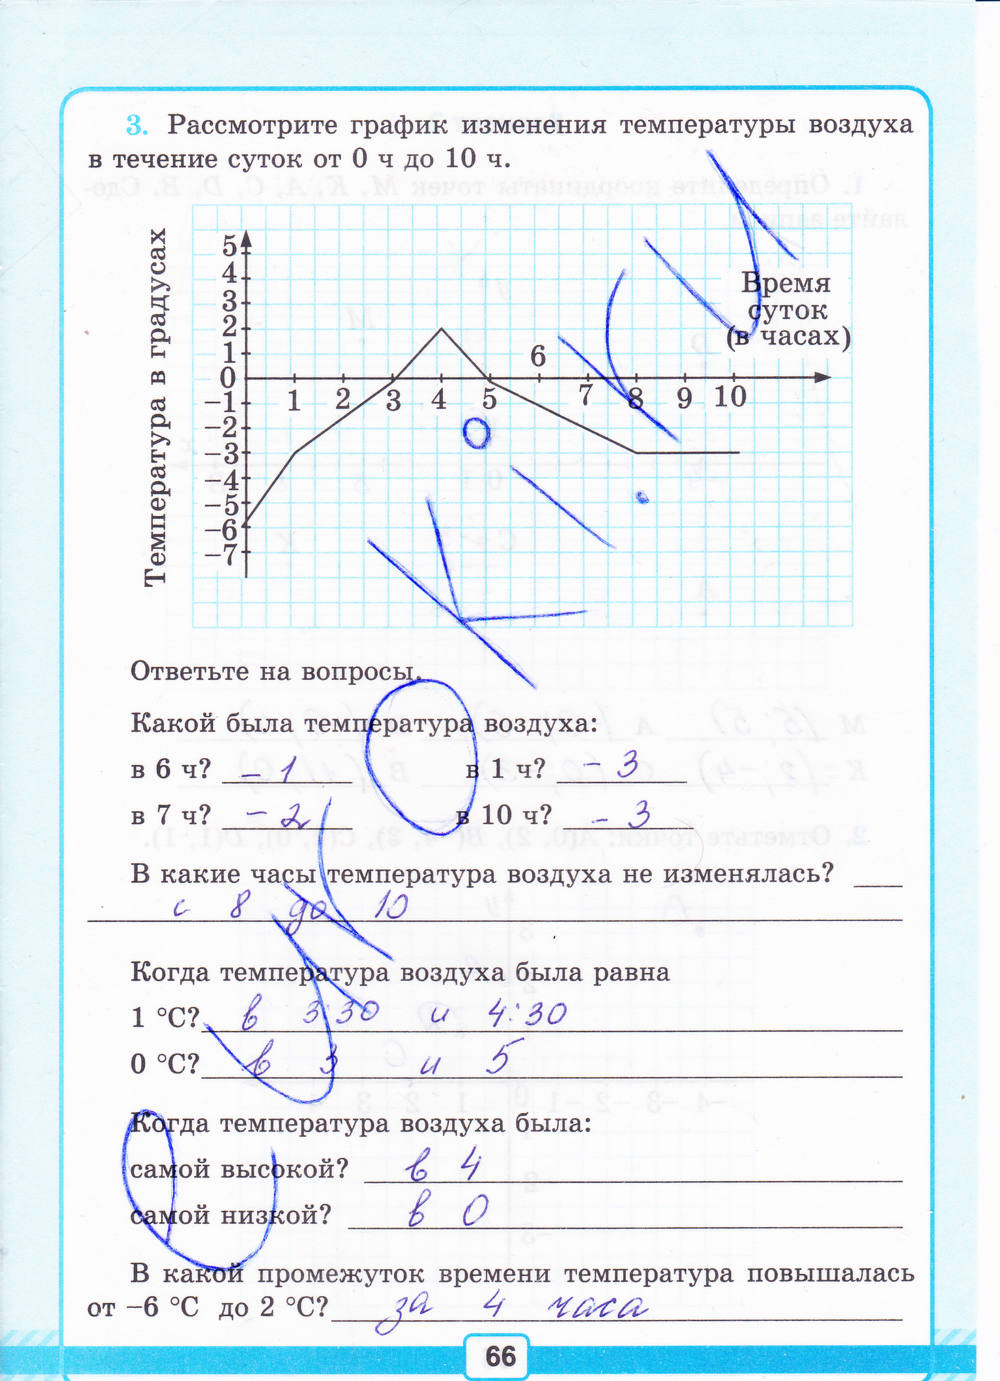 3. Рассмотрите график изменения температуры воздуха
в течение суток от 0 ч до 10 ч.
Температура в градусах
5
4
3
2
1
0
−1
−2
−3
−4
−5
−6
−7
1 2 3 4 5 6 7 8 9 10
Время
суток
(в часах)
Ответьте на вопросы.
Какой была температура воздуха:
в 6 ч? −1 в 1 ч? −3
в 7 ч? −2 в 10 ч? −3
В какие часы температура воздуха не изменялась?
с 8 до 10
Когда температура воздуха была равна
1 °С? в 3:30 и 4:30
0 °С? в 3 и 5
Когда температура воздуха была:
самой высокой? в 4
самой низкой? в 0
В какой промежуток времени температура повышалась
от −6 °С до 2 °С? за 4 часа
66